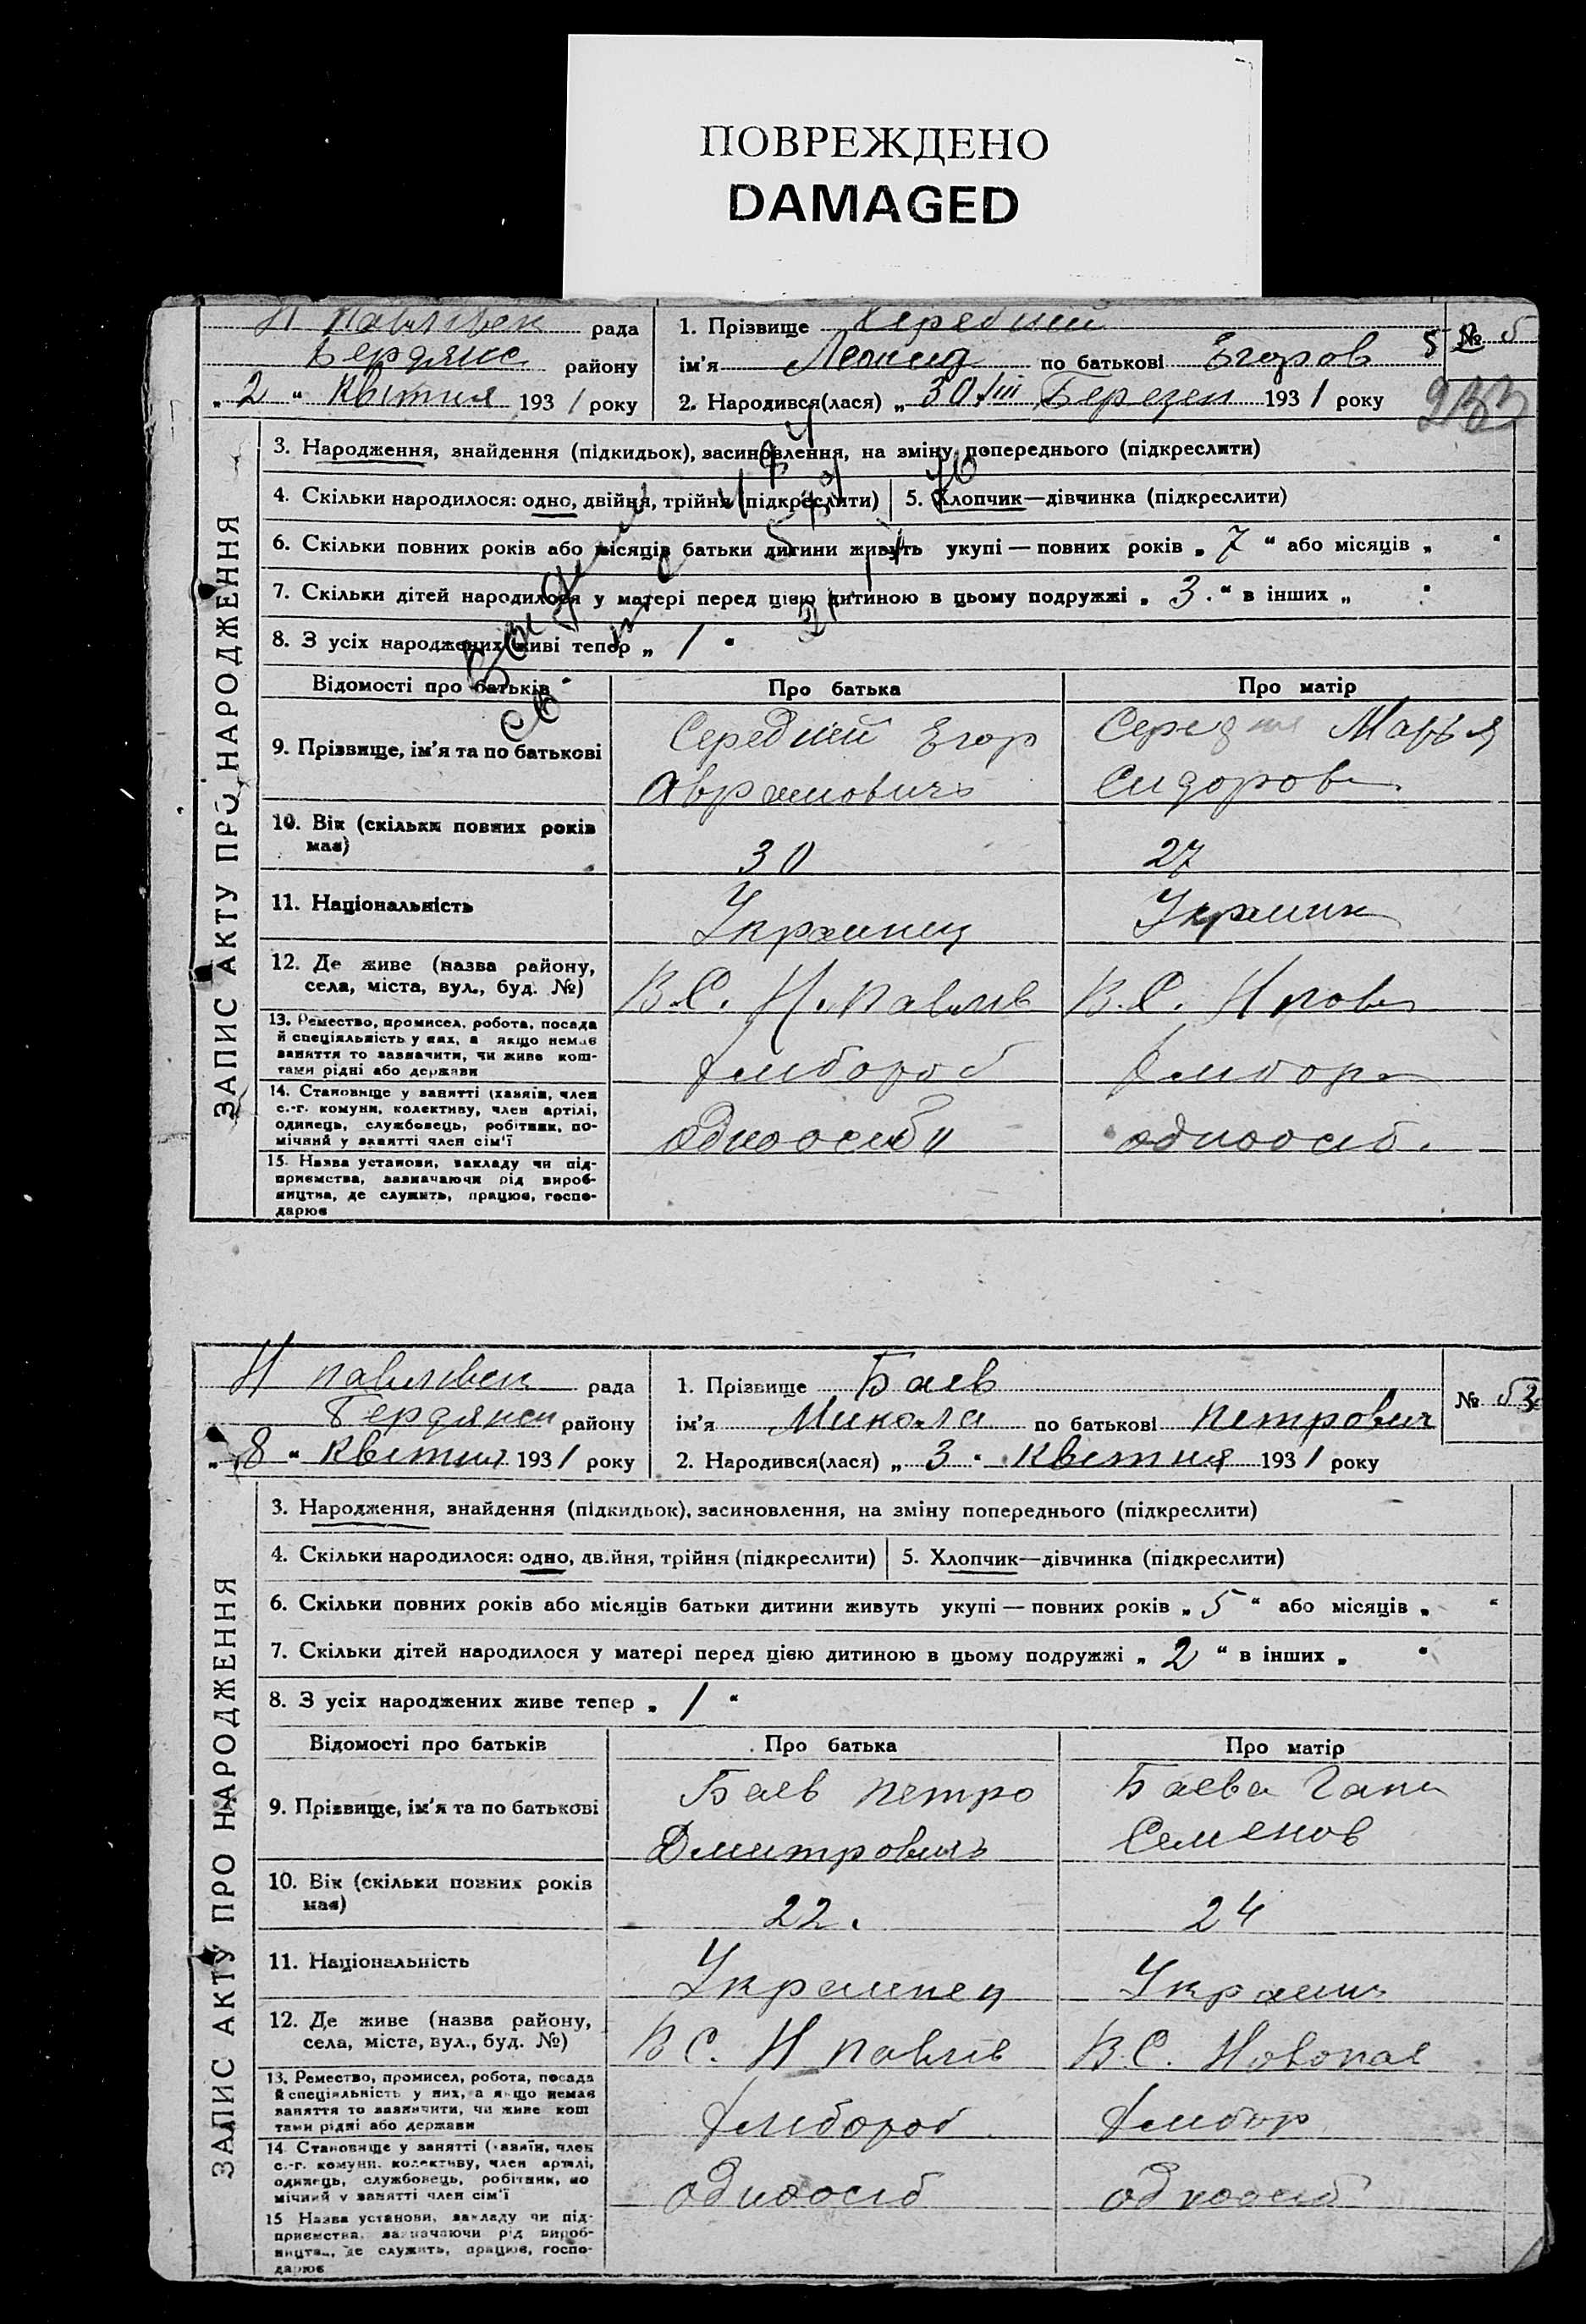 ПОВРЕЖДЕНО
DAMAGED
Н Павлівск рада
Бердянс району
„ 2 “ Квітня 1931 року
1. Прізвище
ім'я Леонид по батькові Егоров
2. Народився(лася) „ 30/III Березен 1931 року
№ 5
233
ЗАПИС АКТУ ПРО НАРОДЖЕННЯ
3. Народження, знайдення (підкидьок), засиновлення, на зміну попереднього (підкреслити)
4. Скільки народилося: одно, двійня, трійня (підкреслити)
5. Хлопчик—дівчинка (підкреслити)
6. Скільки повних років або місяців батьки дитини живуть укупі — повних років „ 7 “ або місяців „ “
7. Скільки дітей народилося у матері перед цією дитиною в цьому подружжі „ 3. “ в інших „ “
8. З усіх народжених живі тепер „ 1 “
Відомості про батьків
Про батька
Про матір
9. Прізвище, ім'я та по батькові
Середний Егор
Аврамовичъ
Марья
Сидоров
10. Вік (скільки повних років
має)
30
27
11. Національність
Украинец
Украинк
12. Де живе (назва району,
села, міста, вул., буд. №)
В.С. Н. Павлів
В.С. Н пов
13. Ремество, промисел, робота, посада
й спеціяльність у них, а якщо немає
заняття то зазначити, чи живе кош-
тами рідні або держави
хлібороб
хлібор
14. Становище у занятті (хазяїн, член
с.-г. комуни, колективу, член артілі,
одинець, службовець, робітник, по-
мічний у занятті член сім'ї
одноосіб
одноосіб.
15. Назва установи, закладу чи під-
приємства, зазначаючи рід вироб-
ництва, де служить, працює, госпо-
дарює
Н Павлівск рада
Бердянск району
„ 8 “ Квітня 1931 року
1. Прізвище Баев
ім'я Микола по батькові Петрович
2. Народився(лася) „ 3 “ Квітня 1931 року
№ 53
ЗАПИС АКТУ ПРО НАРОДЖЕННЯ
3. Народження, знайдення (підкидьок), засиновлення, на зміну попереднього (підкреслити)
4. Скільки народилося: одно, двійня, трійня (підкреслити)
5. Хлопчик—дівчинка (підкреслити)
6. Скільки повних років або місяців батьки дитини живуть укупі — повних років „ 5 “ або місяців „ “
7. Скільки дітей народилося у матері перед цією дитиною в цьому подружжі „ 2 “ в інших „ “
8. З усіх народжених живе тепер „ 1 “
Відомості про батьків
Про батька
Про матір
9. Прізвище, ім'я та по батькові
Баев Петро
Дмитровичъ
Баева Гана
Семенов
10. Вік (скільки повних років
має)
22.
24
11. Національність
Украинец
Украин
12. Де живе (назва району,
села, міста, вул., буд. №)
В С. Н Павлів
В.С. Новопав
13. Ремество, промисел, робота, посада
й спеціяльність у них, а якщо немає
заняття то зазначити, чи живе кош
тами рідні або держави
хлібороб
хлібор
14 Становище у занятті (хазяїн, член
с.-г. комуни, колективу, член артілі,
одинець, службовець, робітник, по
мічний у занятті член сім'ї
одноосіб
одноосіб
15 Назва установи, закладу чи під-
приємства, зазначаючи рід вироб-
ництва, де служить, працює, госпо-
дарює